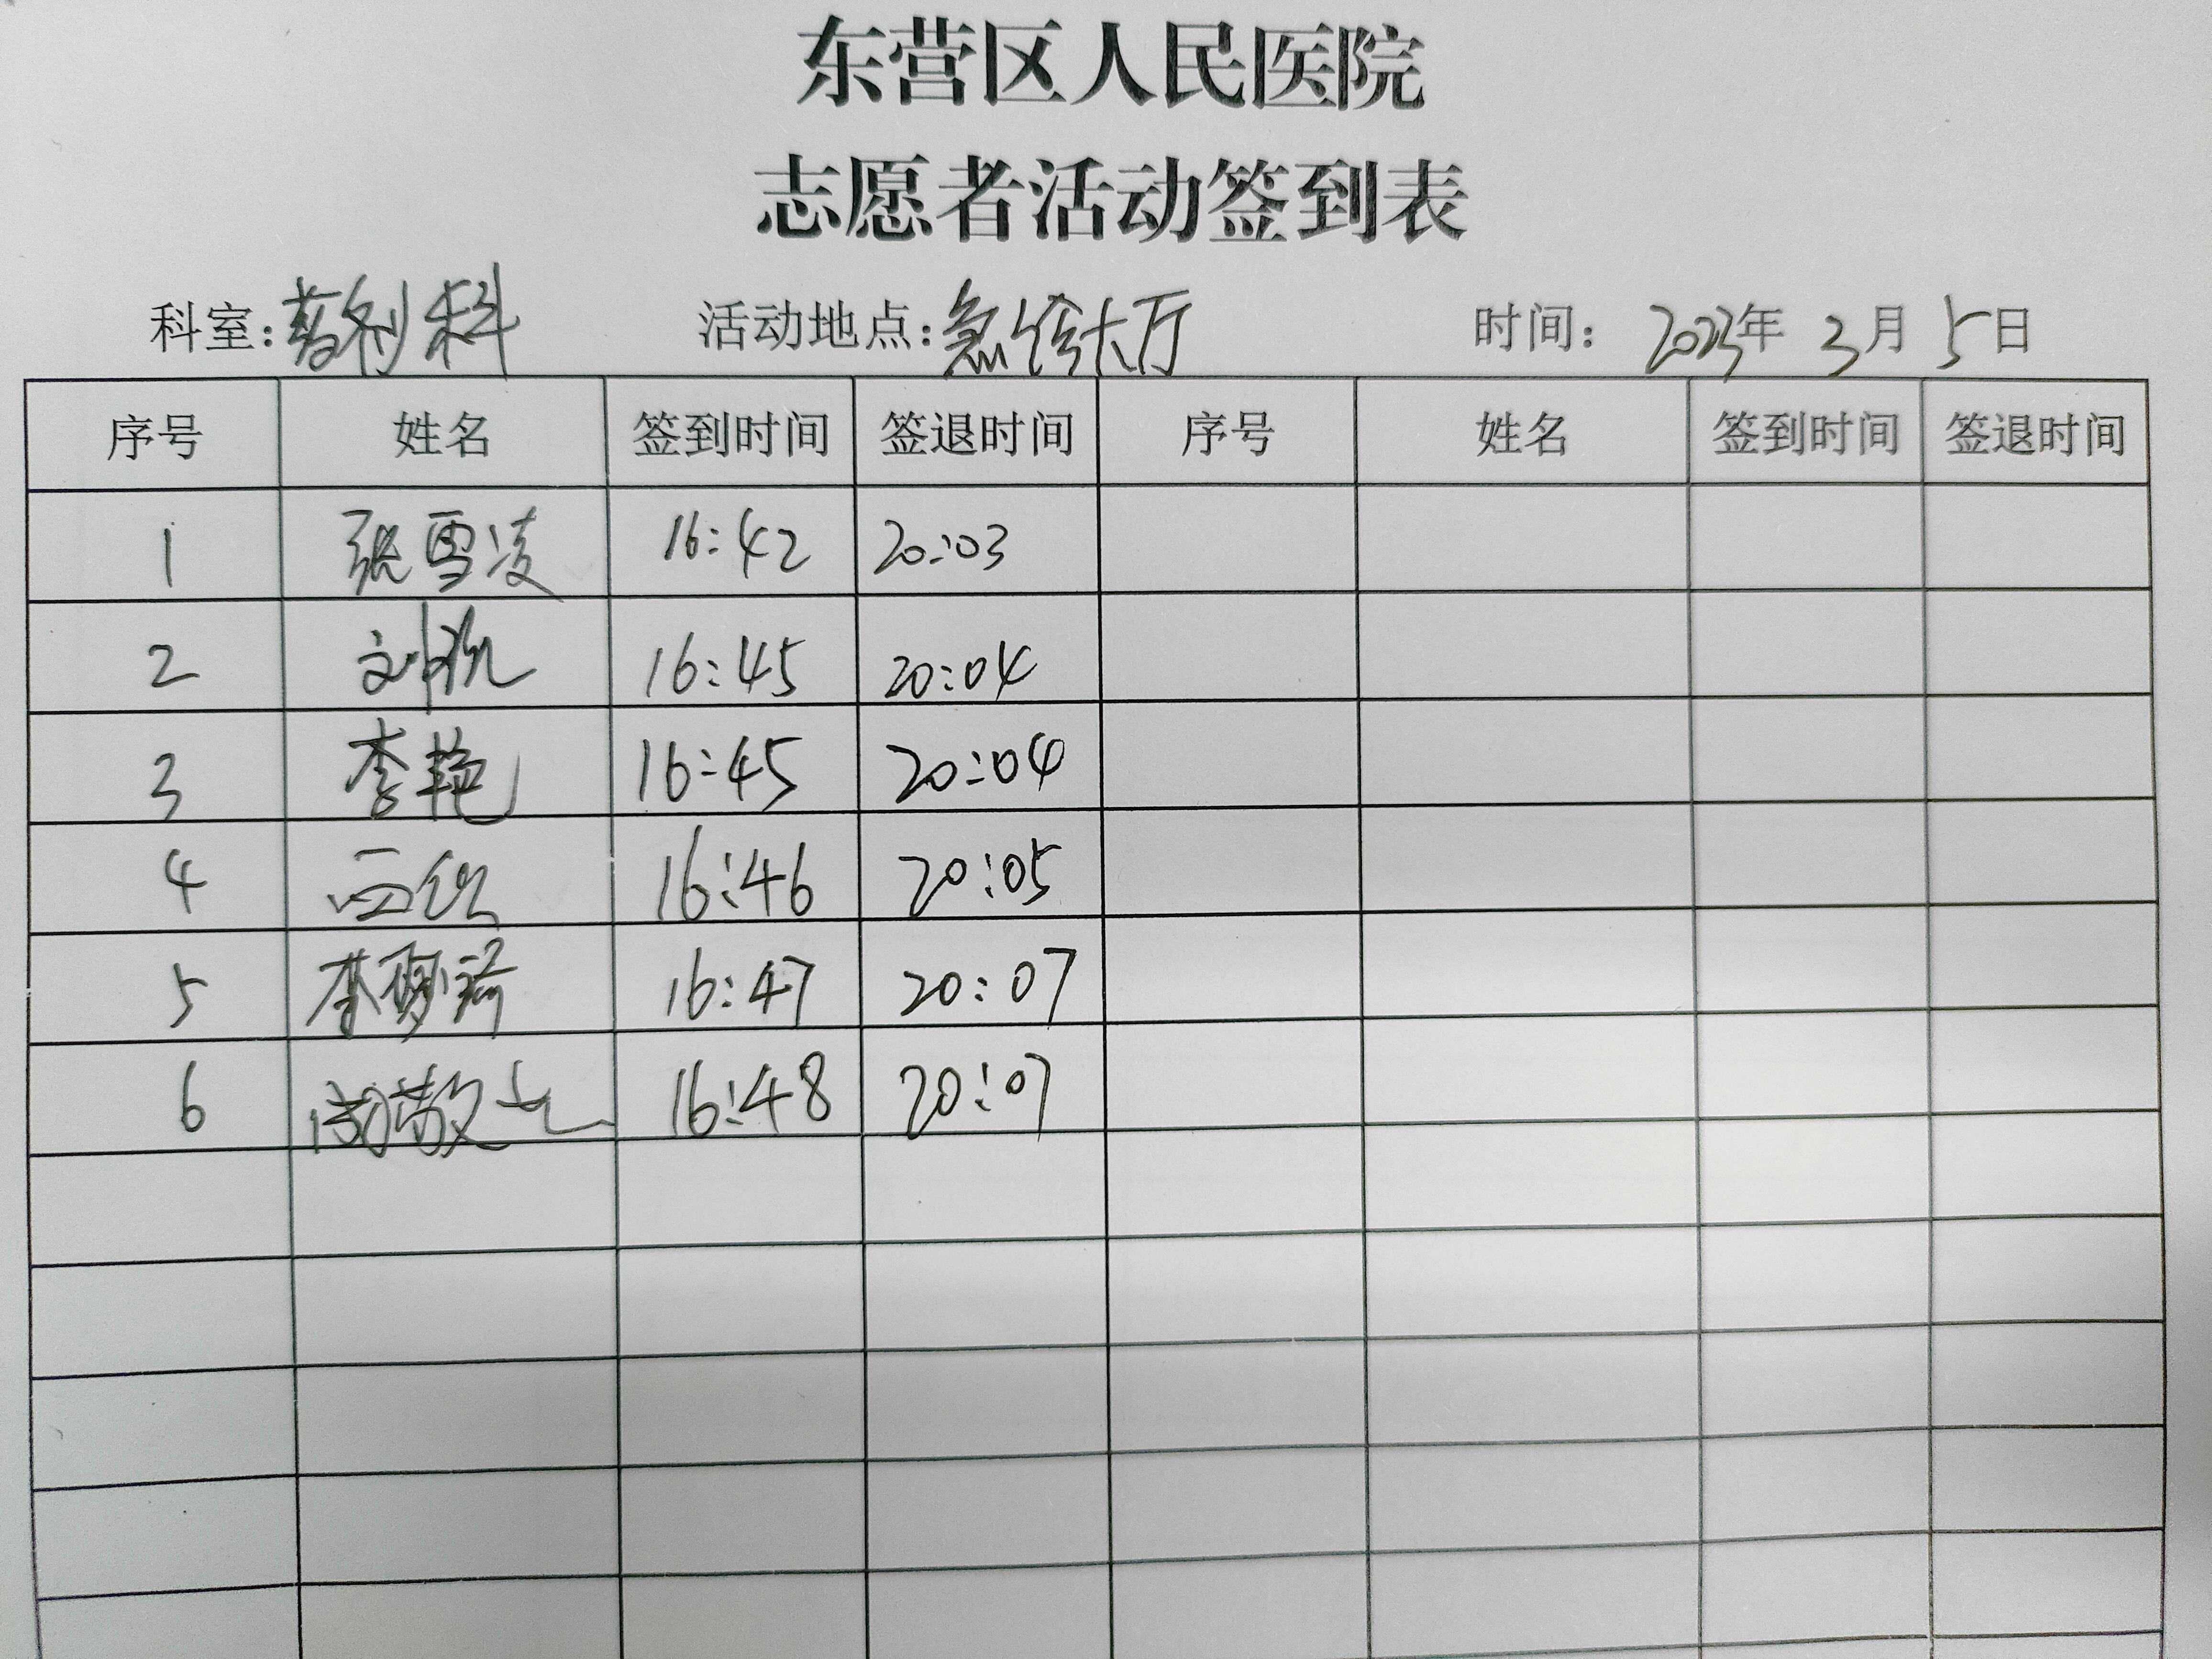 东营区人民医院
志愿者活动签到表
科室: 药剂科 活动地点: 急诊大厅 时间: 2023年 3月 5日
序号 姓名 签到时间 签退时间 序号 姓名 签到时间 签退时间
1 张雪凌 16:42 20:03
2 刘 16:45 20:04
3 李艳 16:45 20:04
4 16:46 20:05
5 李 16:47 20:07
6 16:48 20:07